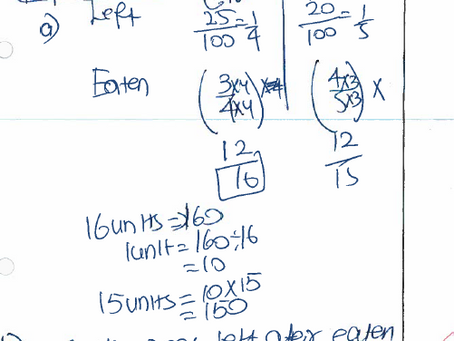 a) Left 25/100 = 1/4 20/100 = 1/5
Eaten (3x4/4x4) x4 (4x3/5x3) x
12/16 12/15
16units => 160
1unit = 160÷16
= 10
15units = 10x15
= 150
left after eaten